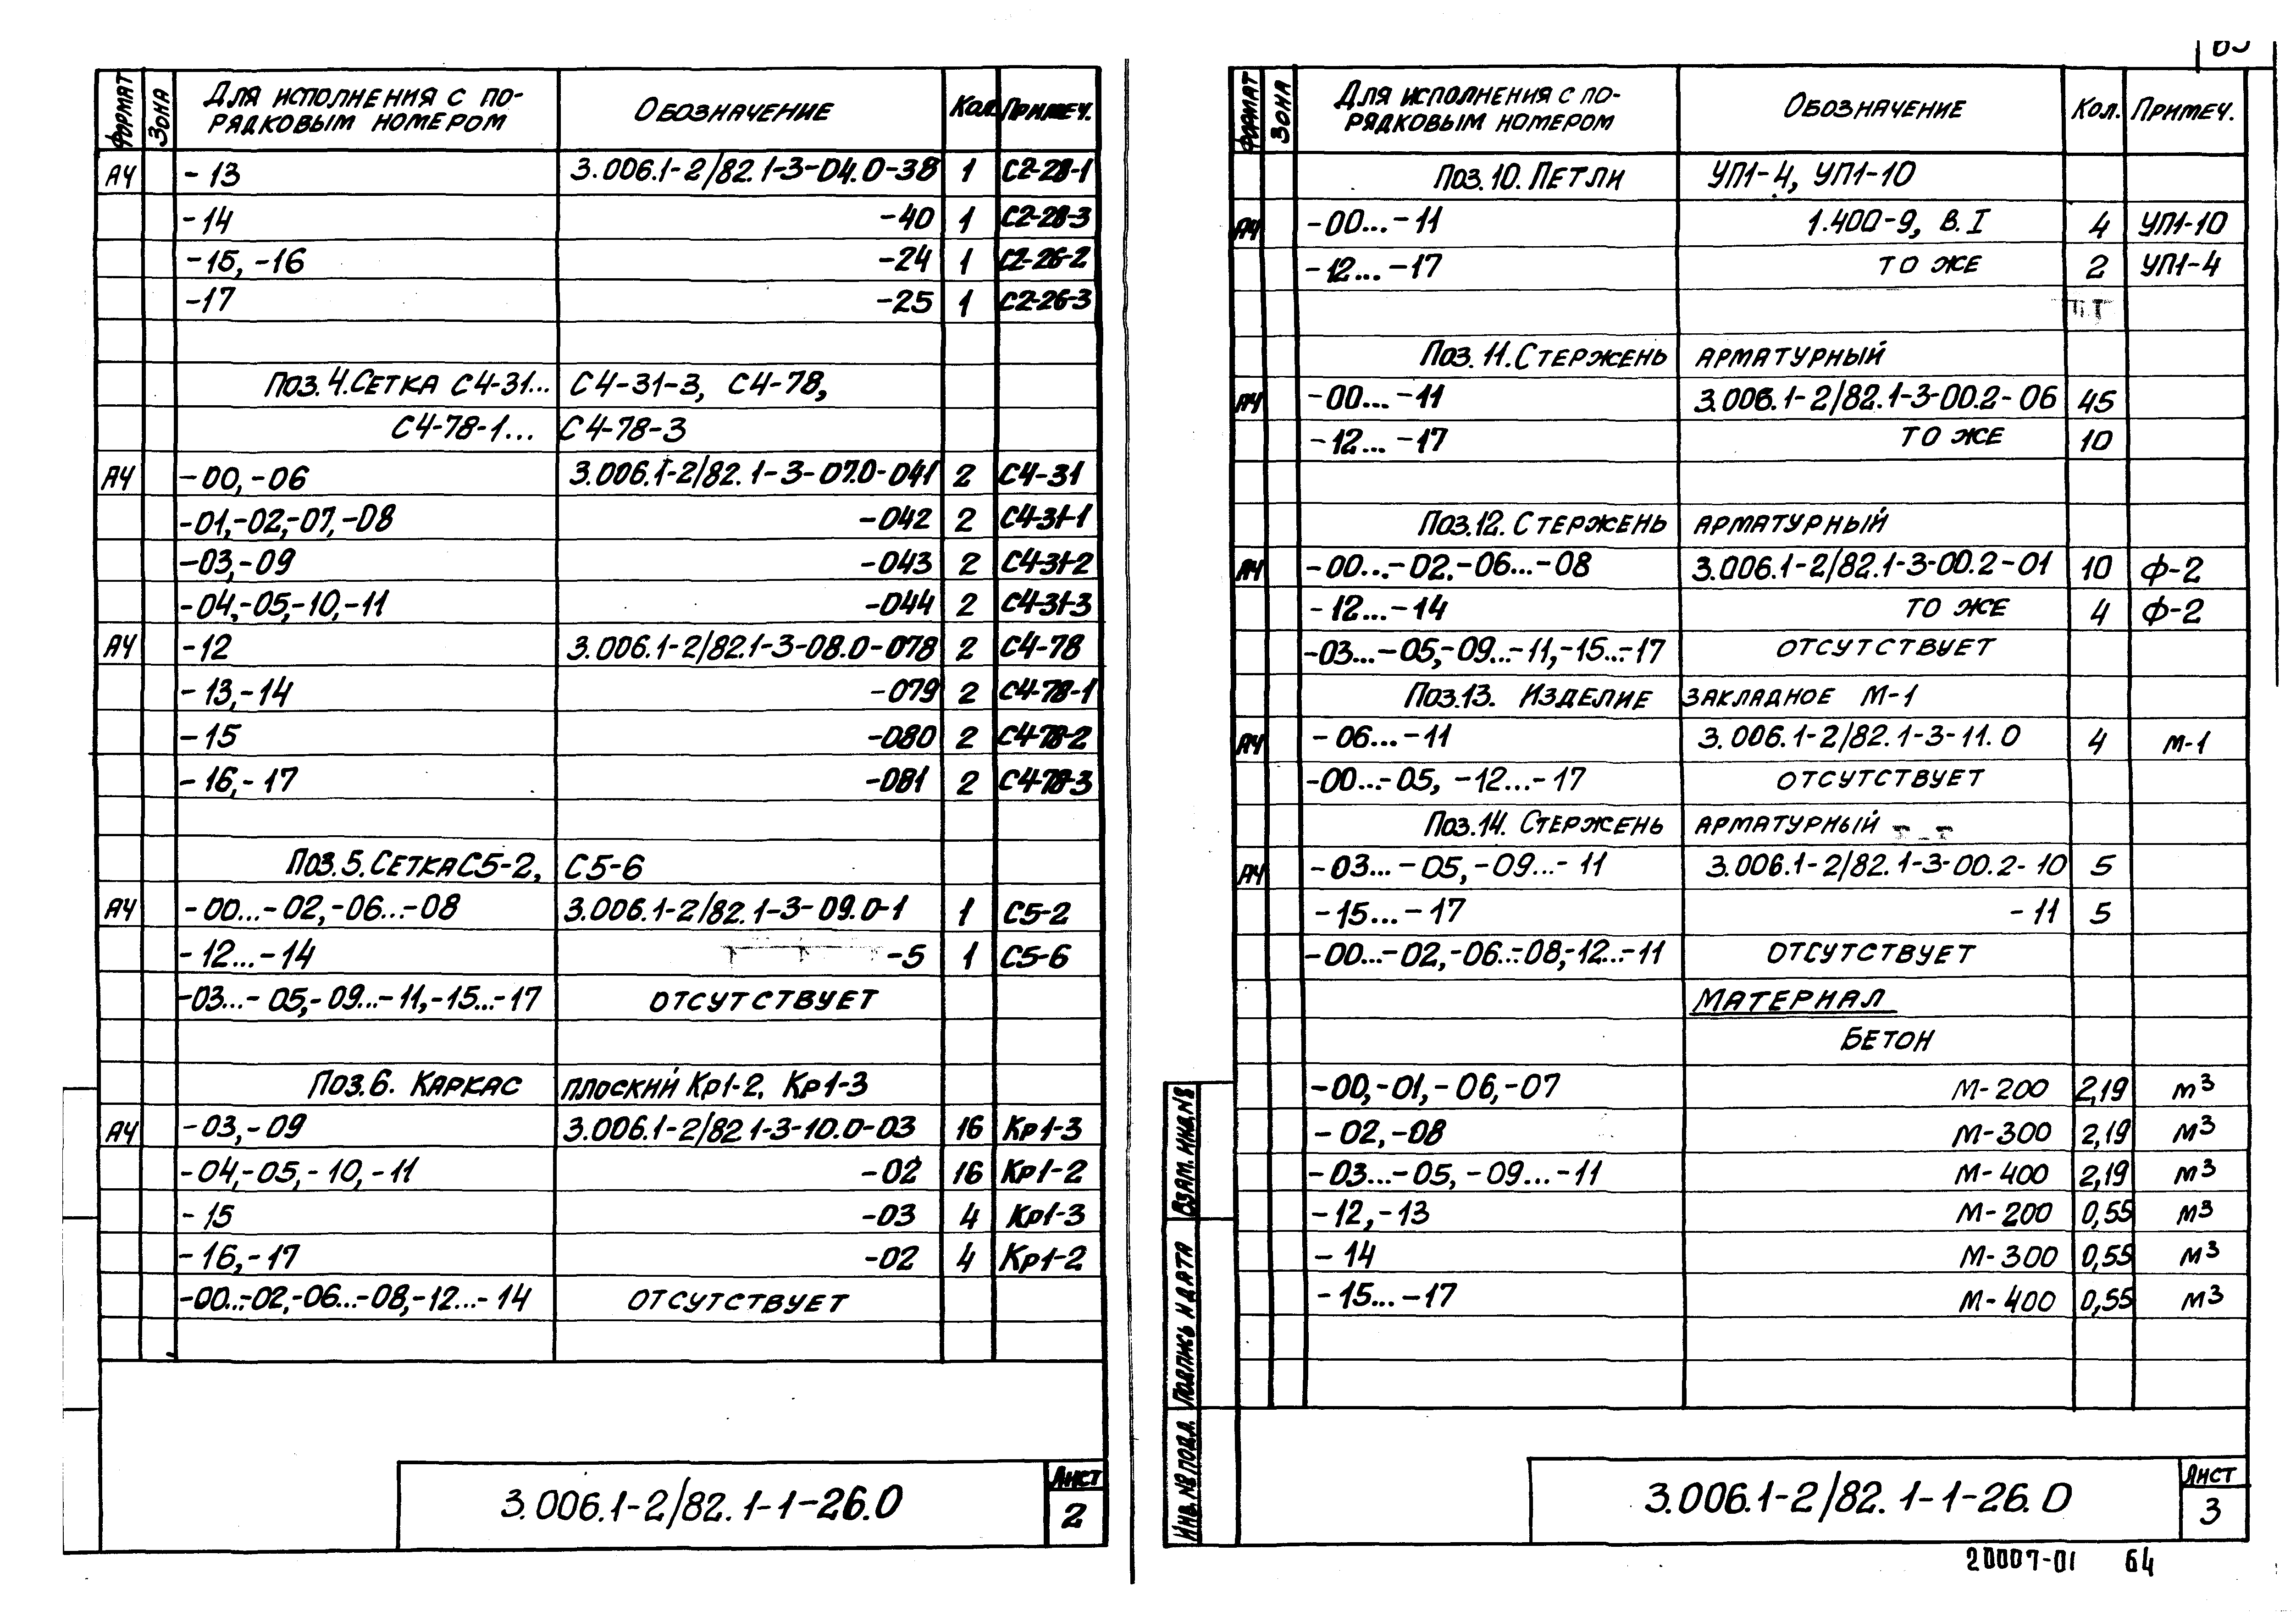 Формат Зона Для исполнения с по-
рядковым номером Обозначение Кол. Примеч.
А4 -13 3.006.1-2/82.1-3-04.0-38 1 С2-28-1
-14 -40 1 С2-28-3
-15, -16 -24 1 С2-26-2
-17 -25 1 С2-26-3
Поз. 4. Сетка С4-31... С4-31-3, С4-78,
С4-78-1... С4-78-3
А4 -00, -06 3.006.1-2/82.1-3-07.0-041 2 С4-31
-01,-02,-07,-08 -042 2 С4-31-1
-03,-09 -043 2 С4-31-2
-04,-05,-10,-11 -044 2 С4-31-3
А4 -12 3.006.1-2/82.1-3-08.0-078 2 С4-78
-13,-14 -079 2 С4-78-1
-15 -080 2 С4-78-2
-16,-17 -081 2 С4-78-3
Поз. 5. Сетка С5-2, С5-6
А4 -00...-02,-06...-08 3.006.1-2/82.1-3-09.0-1 1 С5-2
-12...-14 -5 1 С5-6
-03...-05,-09...-11,-15...-17 отсутствует
Поз. 6. Каркас плоский Кр1-2, Кр1-3
А4 -03,-09 3.006.1-2/82 1-3-10.0-03 16 Кр1-3
-04,-05,-10,-11 -02 16 Кр1-2
-15 -03 4 Кр1-3
-16,-17 -02 4 Кр1-2
-00...-02,-06...-08,-12...-14 отсутствует
3.006.1-2/82.1-1-26.0 Лист
2
Формат Зона Для исполнения с по-
рядковым номером Обозначение Кол. Примеч.
Поз. 10. Петли УП1-4, УП1-10
А4 -00...-11 1.400-9, В.I 4 УП1-10
-12...-17 то же 2 УП1-4
Поз. 11. Стержень арматурный
А4 -00...-11 3.006.1-2/82.1-3-00.2-06 45
-12...-17 то же 10
Поз. 12. Стержень арматурный
А4 -00...-02.-06...-08 3.006.1-2/82.1-3-00.2-01 10 Ф-2
-12...-14 то же 4 Ф-2
-03...-05,-09...-11,-15...-17 отсутствует
Поз. 13. Изделие закладное М-1
А4 -06...-11 3.006.1-2/82.1-3-11.0 4 М-1
-00...-05, -12...-17 отсутствует
Поз. 14. Стержень арматурный
А4 -03...-05,-09...-11 3.006.1-2/82.1-3-00.2-10 5
-15...-17 -11 5
-00...-02,-06...-08,-12...-11 отсутствует
Материал
Бетон
-00,-01,-06,-07 М-200 2,19 м³
-02,-08 М-300 2,19 м³
-03...-05,-09...-11 М-400 2,19 м³
-12,-13 М-200 0,55 м³
-14 М-300 0,55 м³
-15...-17 М-400 0,55 м³
Взам. инв. №
Подпись и дата
Инв. № подл.
3.006.1-2/82.1-1-26.0 Лист
3
20007-01 64